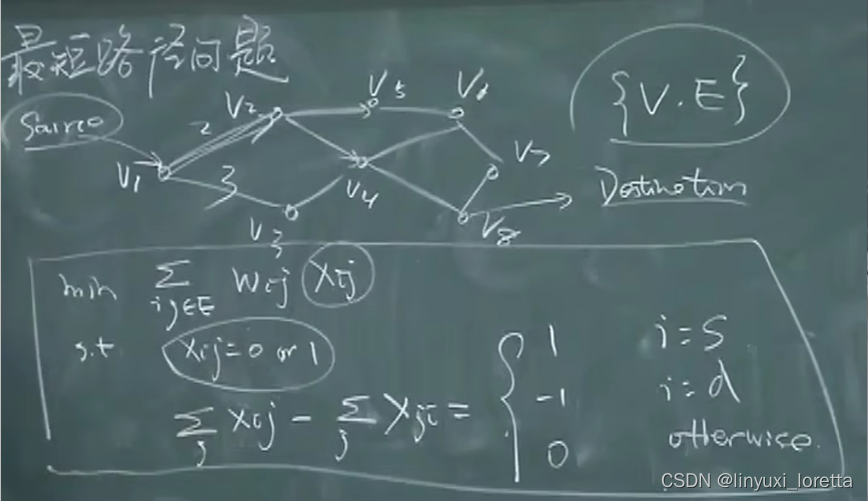 最短路径问题
Source
V1
2
3
V2
V3
V4
V5
V6
V7
V8
{V.E}
Destination
min ∑ ij∈E Wij Xij
s.t Xij=0 or 1
∑j Xij - ∑j Xji = { 1 i=S
-1 i=d
0 otherwise.
CSDN @linyuxi_loretta